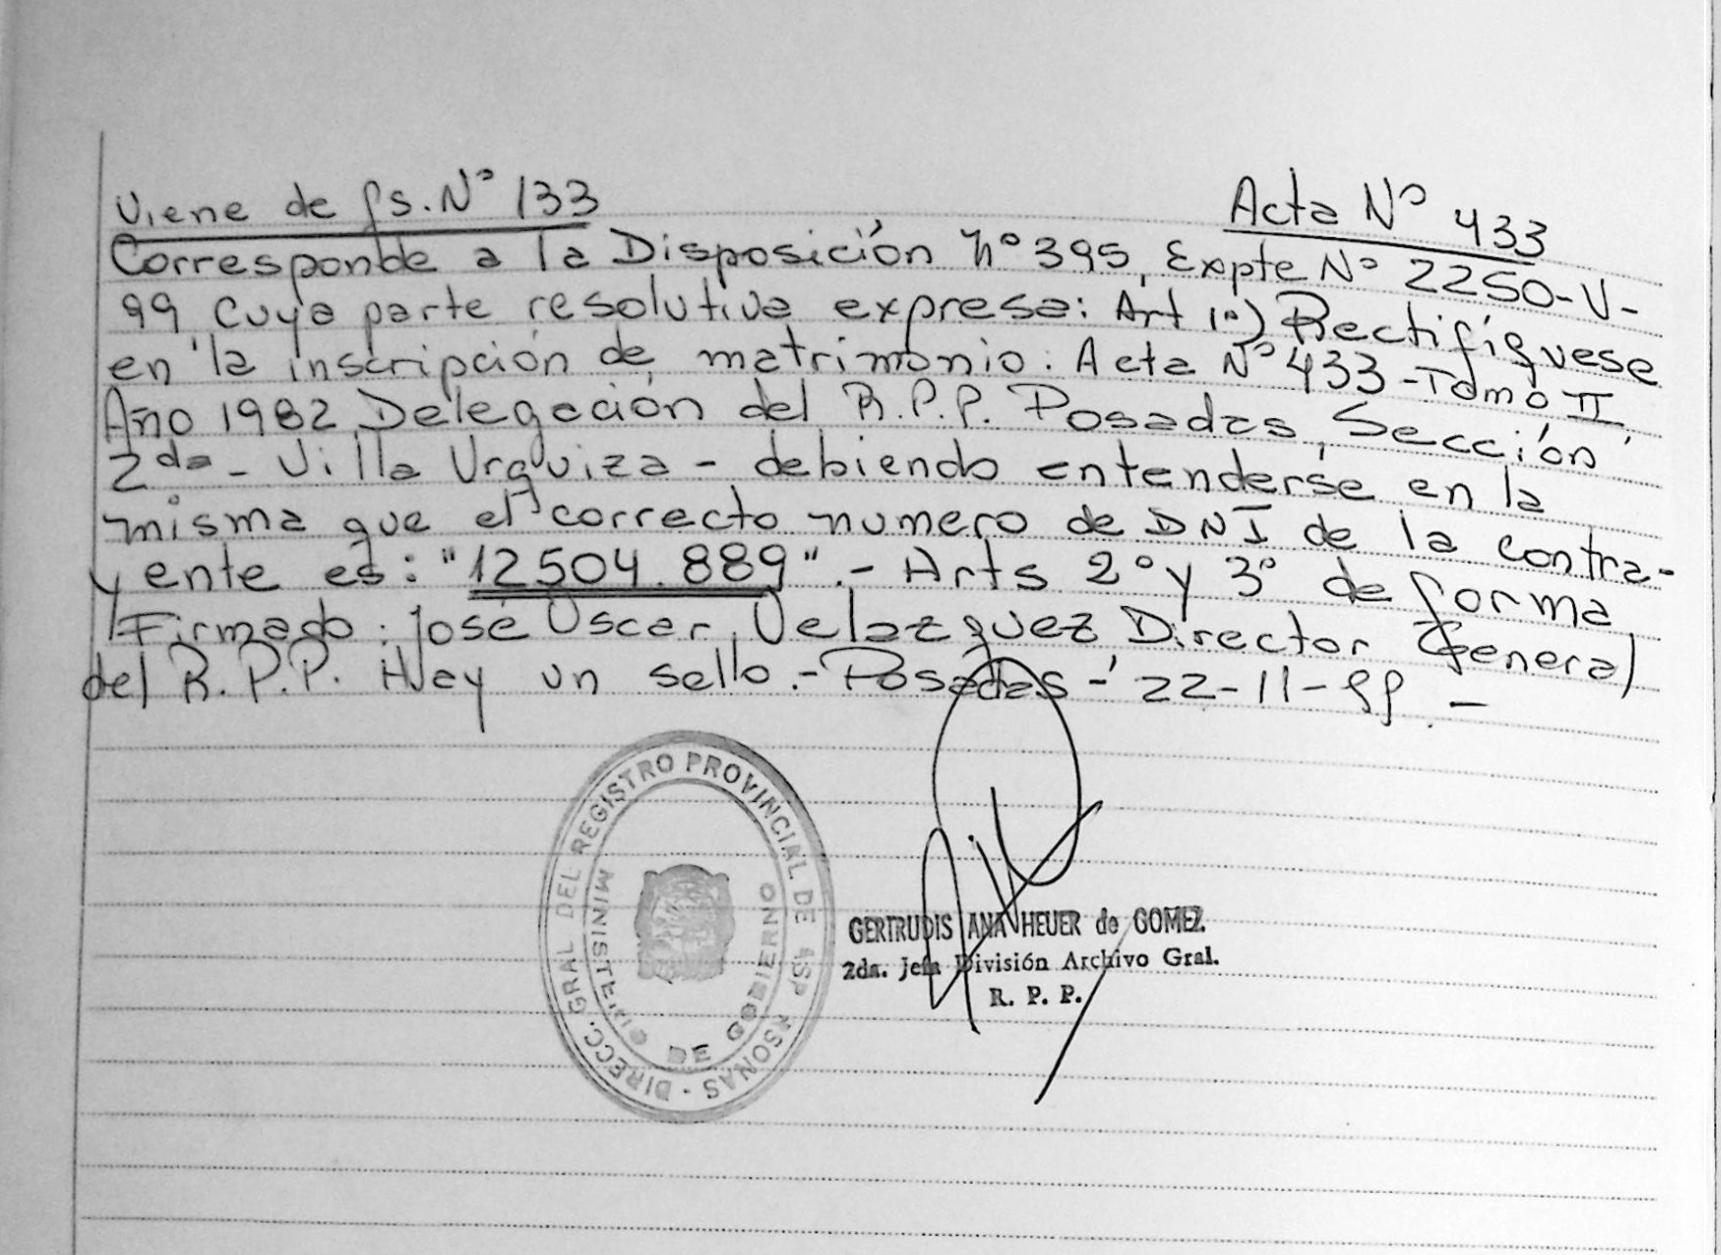 Viene de fs. Nº 133
Acta Nº 433
Corresponde a la Disposición Nº 395, Expte Nº 2250-V-
99 cuya parte resolutiva expresa: Art 1º) Rectifíquese
en la inscripción de matrimonio: Acta Nº 433-Tomo II
Año 1982 Delegación del R.P.P. Posadas, Sección
2da - Villa Urquiza - debiendo entenderse en la
misma que el correcto numero de DNI de la contra-
yente es: "12504.889".- Arts 2º y 3º de forma
Firmado: José Oscar Velazquez Director General
del R.P.P. Hay un sello.- Posadas - 22-11-99 -
DIRECC. GRAL DEL REGISTRO PROVINCIAL DE
MINISTERIO DE GOBIERNO
GERTRUDIS ANA HEUER de GOMEZ
2da. Jefa División Archivo Gral.
R. P. P.